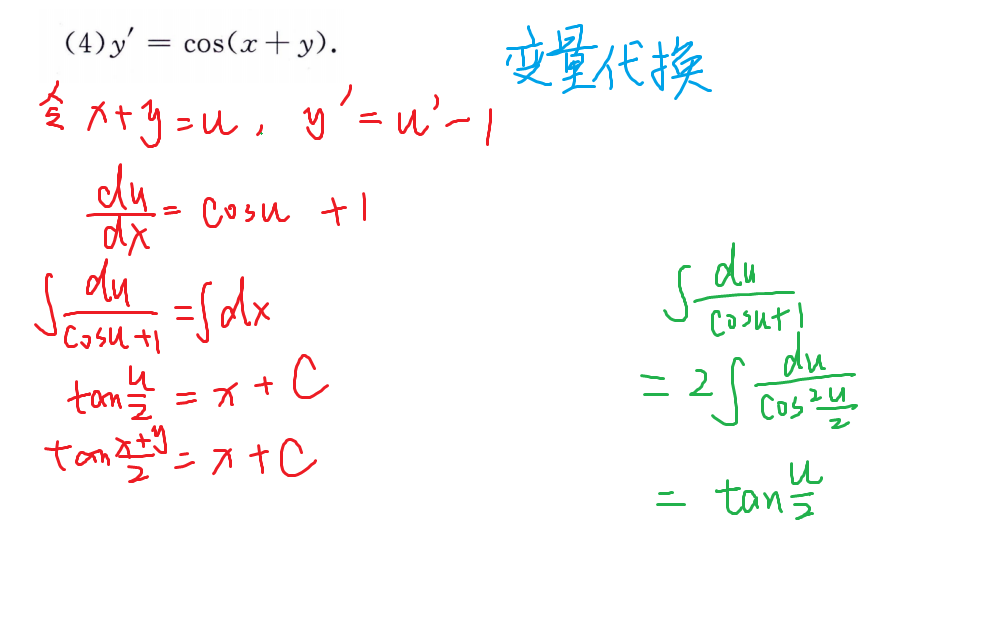 (4) y′ = cos(x + y).
变量代换
令 x+y=u, y'=u'-1
du/dx = cosu +1
∫ du/(cosu+1) = ∫dx
tan u/2 = x + C
tan (x+y)/2 = x + C
∫ du/(cosu+1)
= 2∫ du/(cos² u/2)
= tan u/2